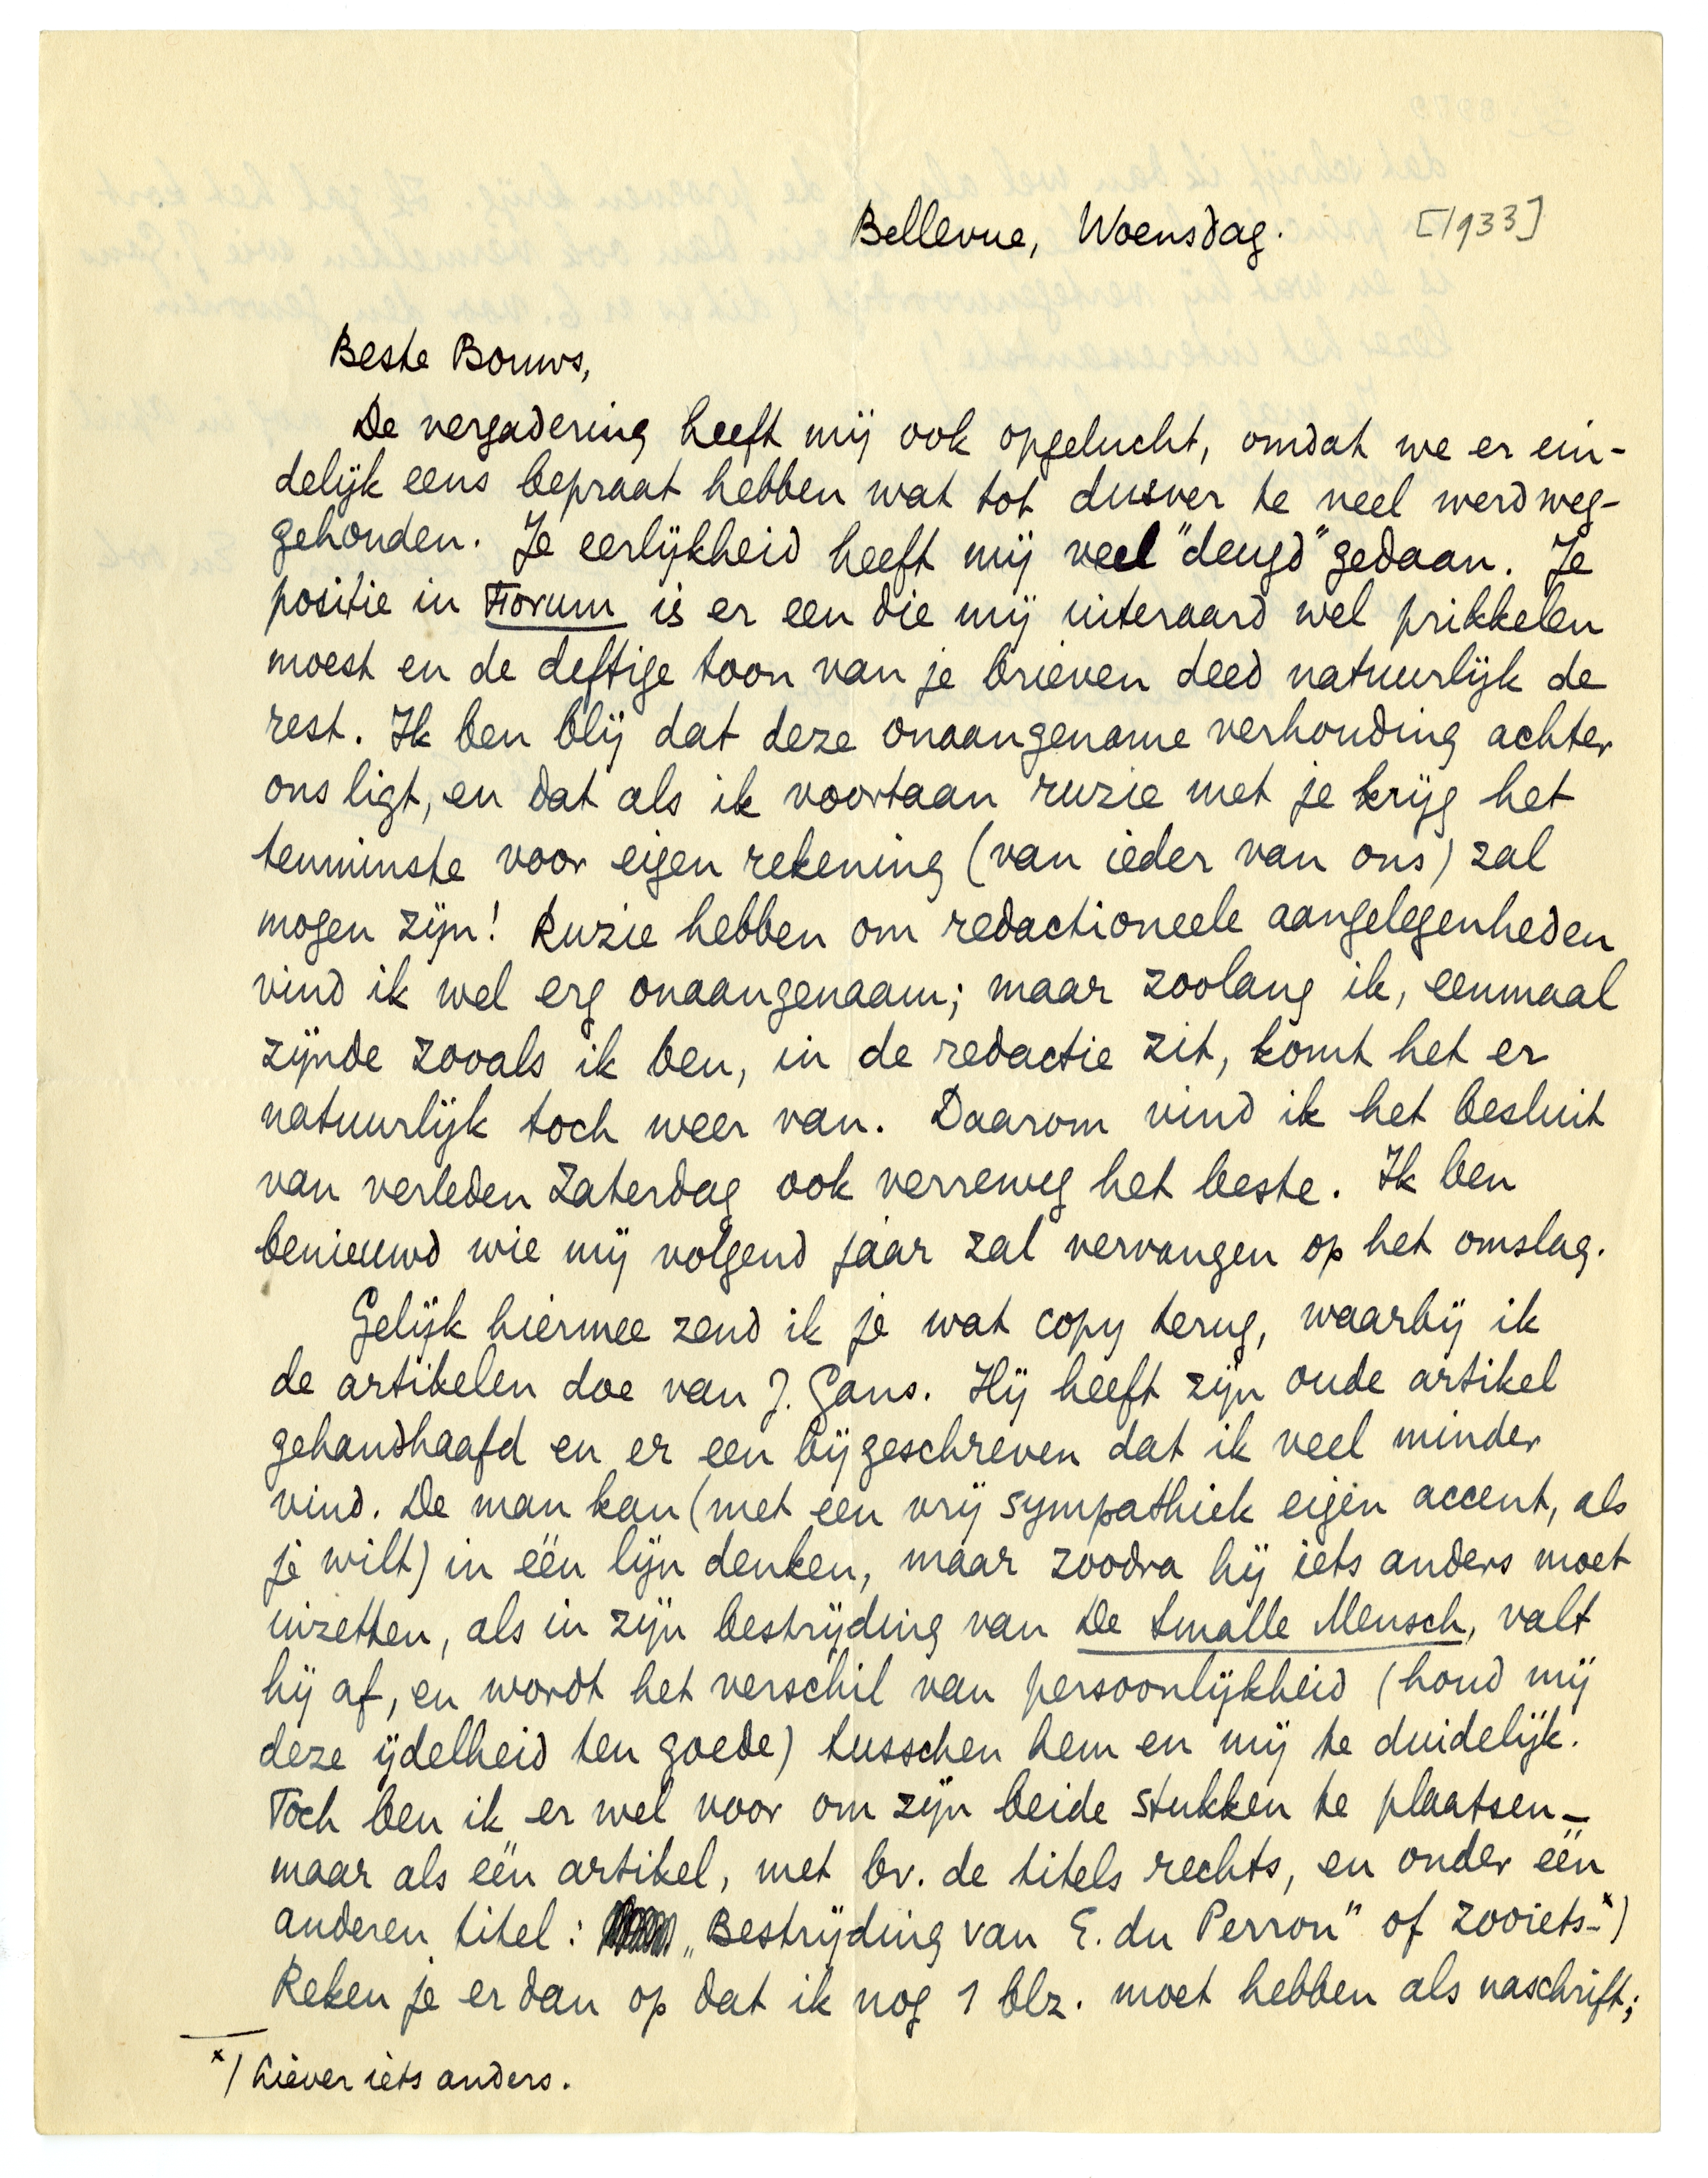 Bellevue, Woensdag. [1933]
Beste Bouws,
De vergadering heeft mij ook opgelucht, omdat we er ein-
delijk eens bepraat hebben wat tot dusver te veel werd weg-
gehouden. Je eerlijkheid heeft mij veel "deugd" gedaan. Je
positie in Forum is er een die mij uiteraard wel prikkelen
moest en de deftige toon van je brieven deed natuurlijk de
rest. Ik ben blij dat deze onaangename verhouding achter
ons ligt, en dat als ik voortaan ruzie met je krijg het
tenminste voor eigen rekening (van ieder van ons) zal
mogen zijn! Ruzie hebben om redactioneele aangelegenheden
vind ik wel erg onaangenaam; maar zoolang ik, eenmaal
zijnde zooals ik ben, in de redactie zit, komt het er
natuurlijk toch weer van. Daarom vind ik het besluit
van verleden Zaterdag ook verreweg het beste. Ik ben
benieuwd wie mij volgend jaar zal vervangen op het omslag.
Gelijk hiermee zend ik je wat copy terug, waarbij ik
de artikelen doe van J. Gans. Hij heeft zijn oude artikel
gehandhaafd en er een bijgeschreven dat ik veel minder
vind. De man kan (met een vrij sympathiek eigen accent, als
je wilt) in één lijn denken, maar zoodra hij iets anders moet
inzetten, als in zijn bestrijding van De Smalle Mensch, valt
hij af, en wordt het verschil van persoonlijkheid (houd mij
deze ijdelheid ten goede) tusschen hem en mij te duidelijk.
Toch ben ik er wel voor om zijn beide stukken te plaatsen –
maar als één artikel, met bv. de titels rechts, en onder één
anderen titel: „Bestrijding van E. du Perron" of zooiets -*)
Reken je er dan op dat ik nog 1 blz. moet hebben als naschrift;
*) Liever iets anders.